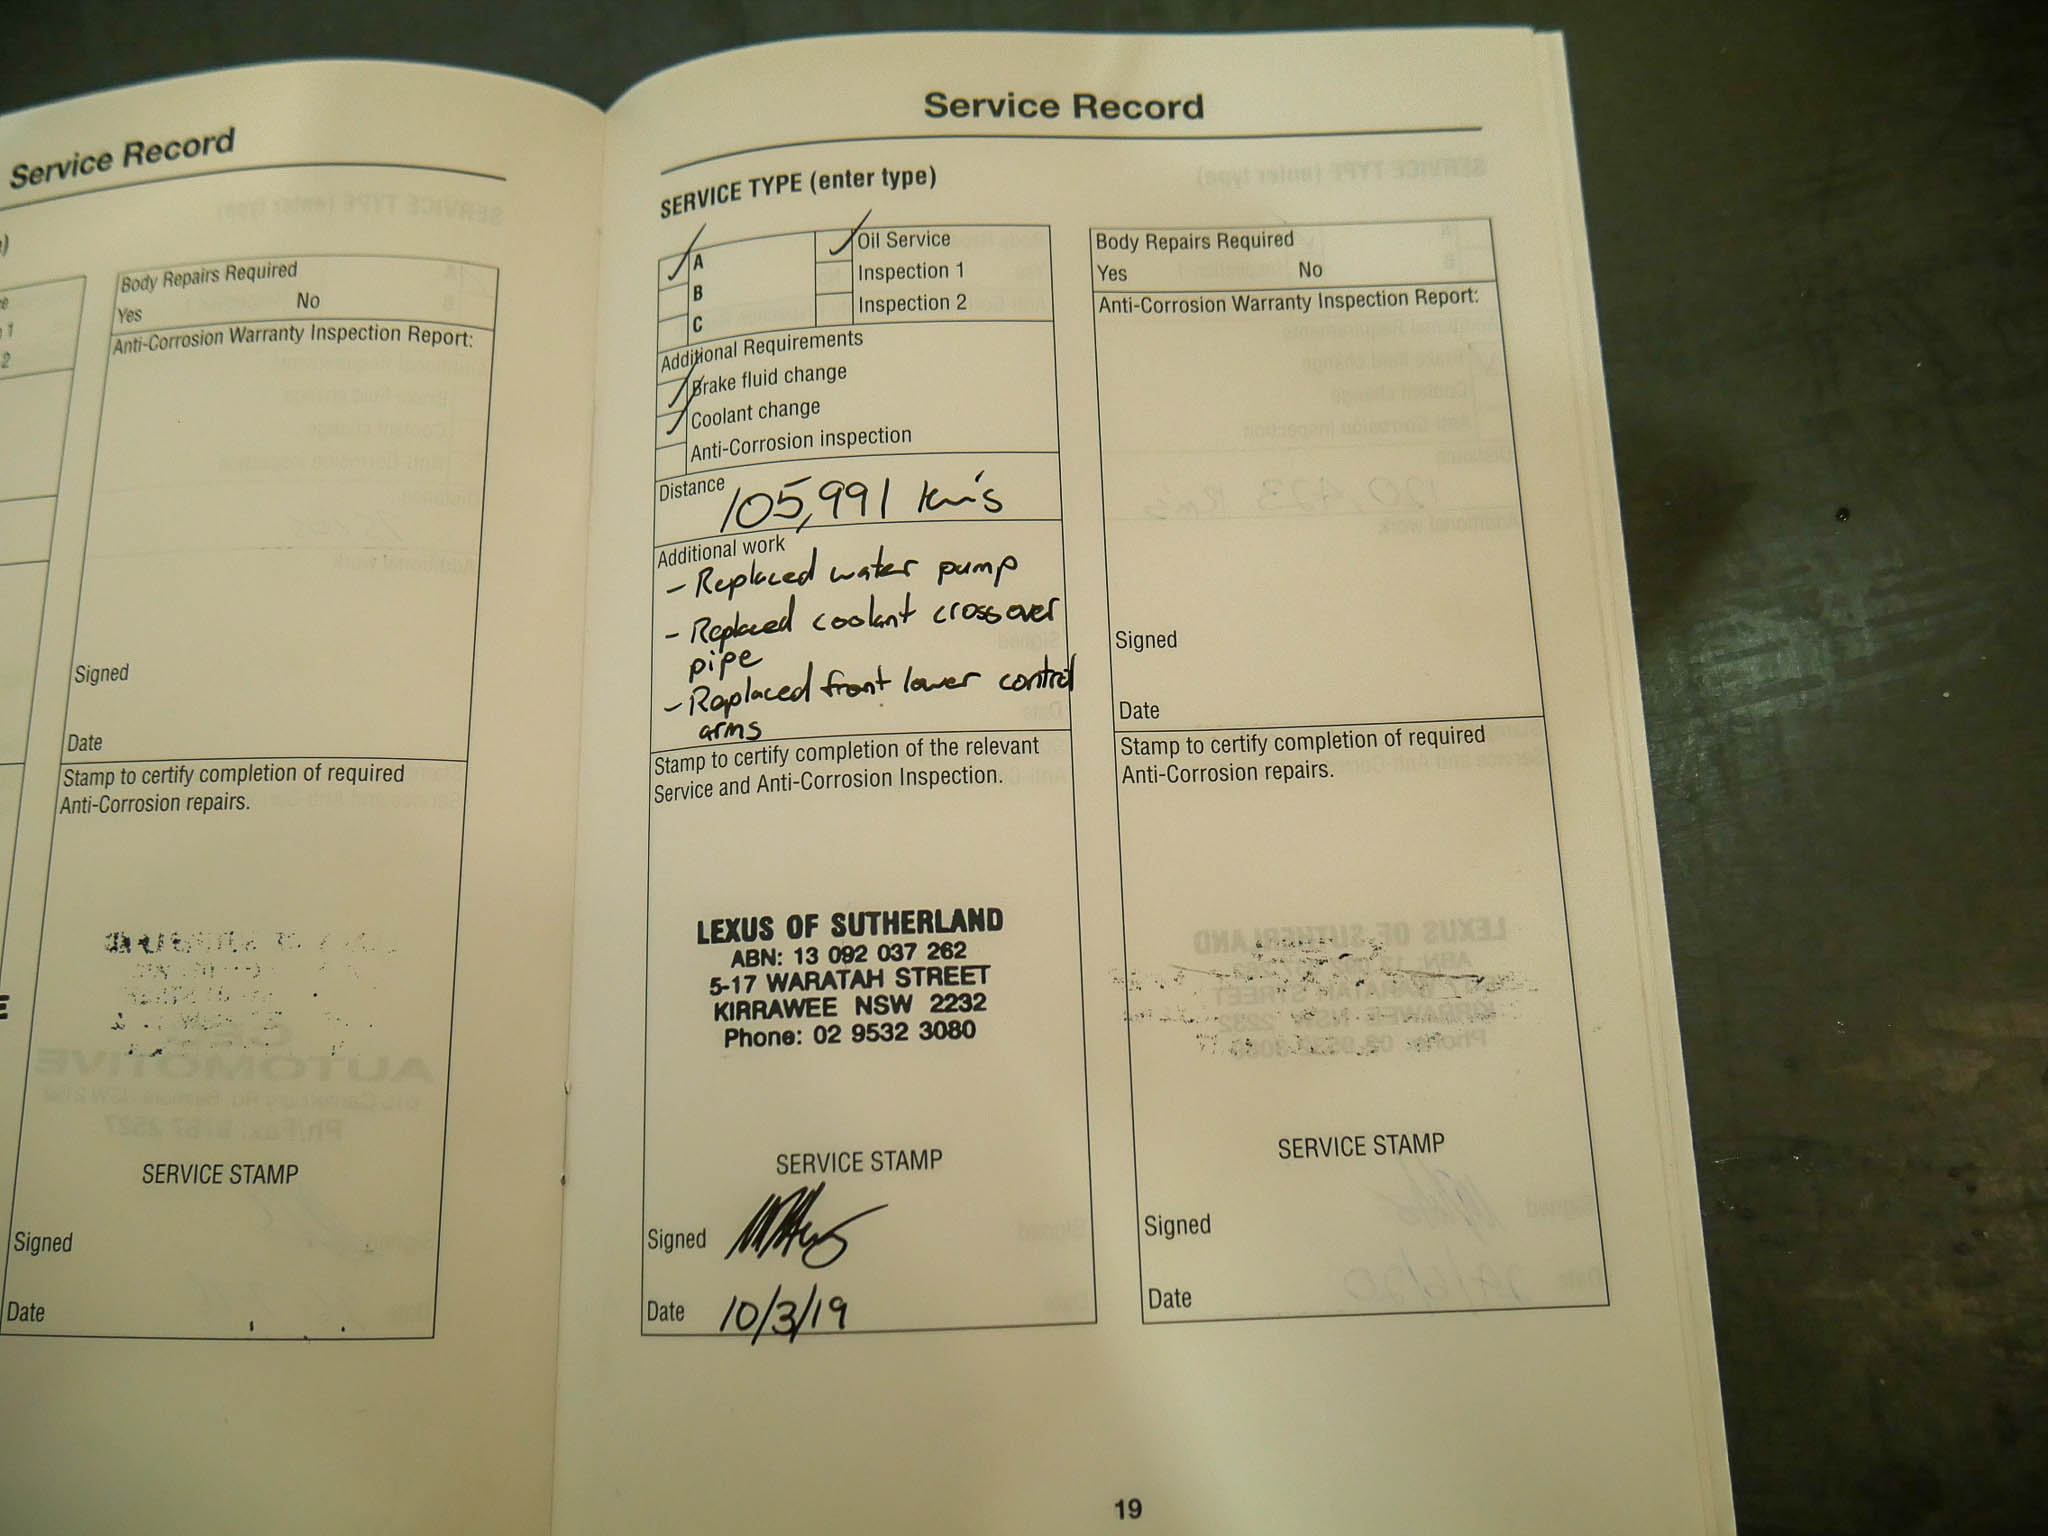 Service Record
Body Repairs Required
Yes No
Anti-Corrosion Warranty Inspection Report:
Signed
Date
Stamp to certify completion of required
Anti-Corrosion repairs.
SERVICE STAMP
Signed
Date
Service Record
SERVICE TYPE (enter type)
A
B
C
Oil Service
Inspection 1
Inspection 2
Additional Requirements
Brake fluid change
Coolant change
Anti-Corrosion inspection
Distance 105,991 km's
Additional work
- Replaced water pump
- Replaced coolant crossover
pipe
- Replaced front lower control
arms
Stamp to certify completion of the relevant
Service and Anti-Corrosion Inspection.
LEXUS OF SUTHERLAND
ABN: 13 092 037 262
5-17 WARATAH STREET
KIRRAWEE NSW 2232
Phone: 02 9532 3080
SERVICE STAMP
Signed
Date 10/3/19
Body Repairs Required
Yes No
Anti-Corrosion Warranty Inspection Report:
Signed
Date
Stamp to certify completion of required
Anti-Corrosion repairs.
SERVICE STAMP
Signed
Date
19